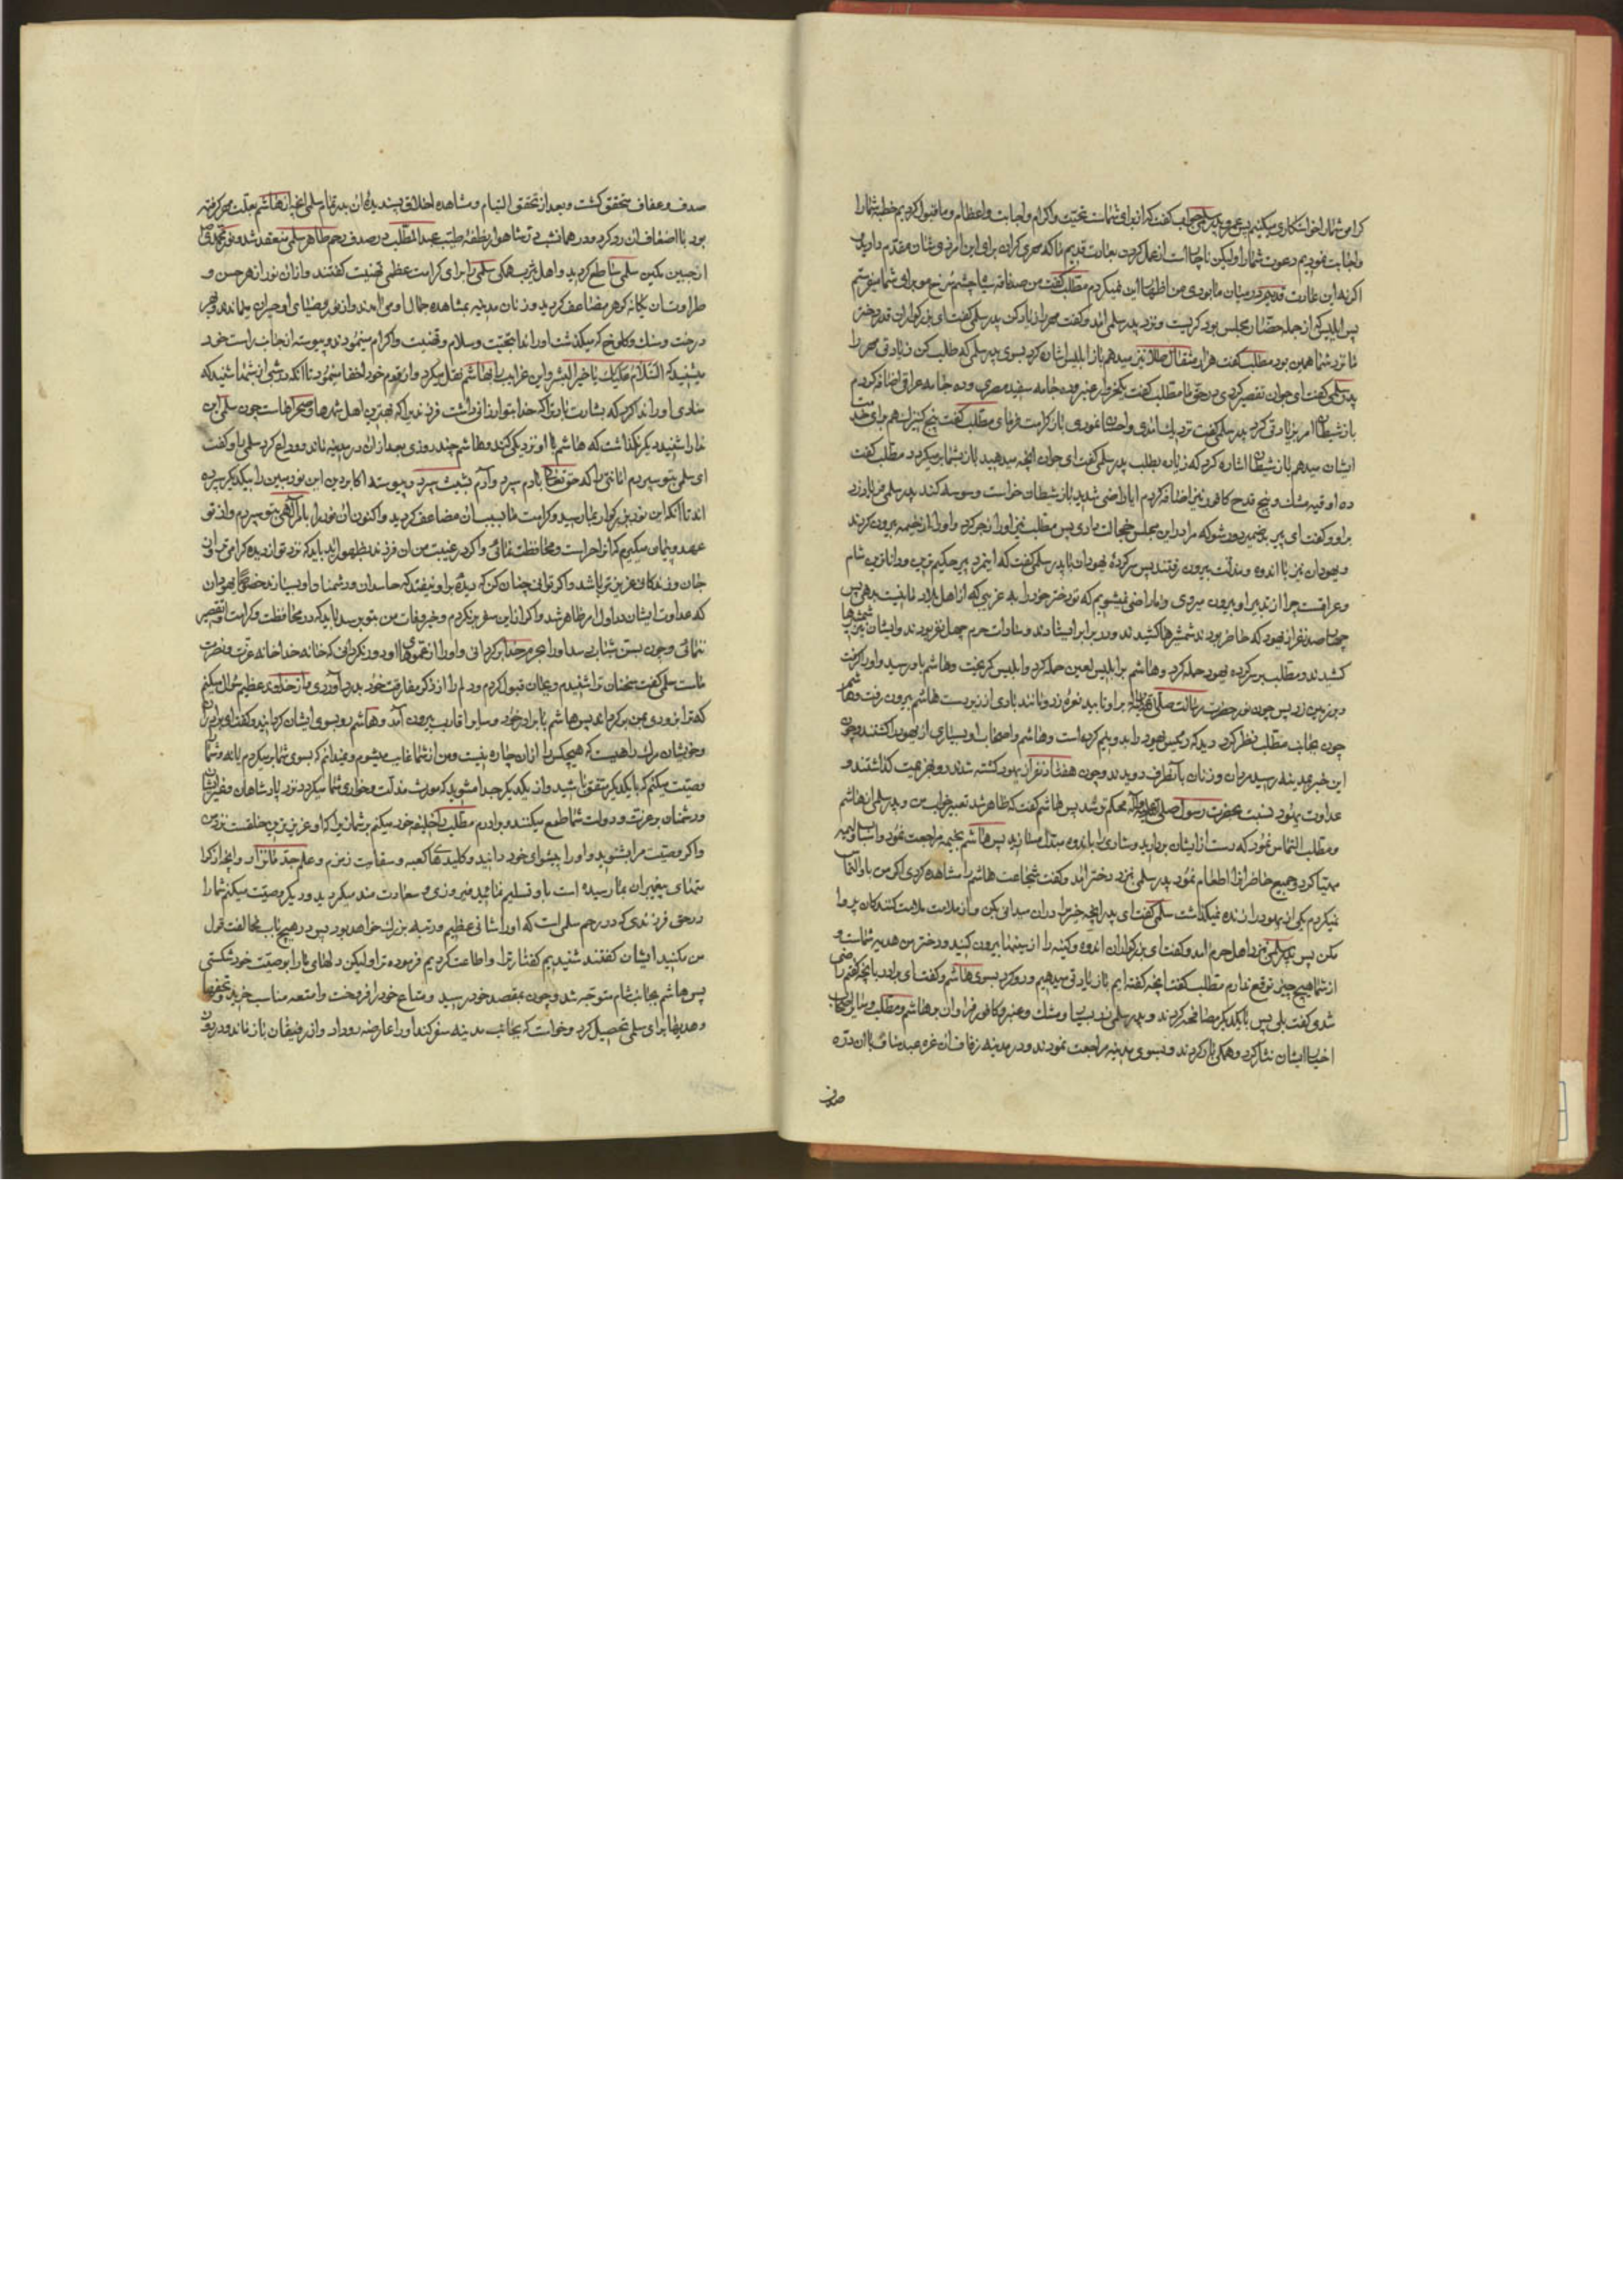 کرامی شما را خواستکاری میکنیم پس عمرو پدر سلمی جواب گفت که از برای شماست تحیت و اکرام و اجابت و اعظام و ما قبول کردیم خطبه شما را
و اجابت نمودیم دعوت شما را و لیکن ناچار است از عمل کردن بعادت قدیم ما که مهری کران برای این امر ذی شان مقدم دارید و
اکر نه این عادت قدیم در میان ما بودی من اظهار این نمیکردم مطلب گفت من صد ناقه سیاه چشم سرخ مو برای شما میفرستم
پس ابلیس که از جمله حضار مجلس بود کریست و نزد پدر سلمی آمد و گفت مهر را زیاد کن پدر سلمی گفت ای بزرگواران قدر دختر
ما نزد شما همین بود مطلب گفت هزار مثقال طلا نیز میدهم باز ابلیس اشاره کرد بسوی پدر سلمی که طلب کن زیادتی مهر را
پدر سلمی گفت ای جوان تقصیر کردی در حق ما مطلب گفت یکخروار عنبر و ده جامه سفید مصری و ده جامه عراقی اضافه کردم
باز شیطان امر بزیادتی کرد پدر سلمی گفت نزدیک آمدی و احسان نمودی باز کرامت فرمای مطلب گفت پنج کنیز هم برای خدمت
ایشان میدهم باز شیطان اشاره کرد که زیاده بطلب پدر سلمی گفت ای جوان آنچه میدهید باز بشما بر میکردد مطلب گفت
ده اوقیه مشک و پنج قدح کافور نیز اضافه کردم آیا راضی شدید باز شیطان خواست وسوسه کند پدر سلمی فریاد زد
بر او و گفت ای پیر بدضمیر دور شو که مرا در این مجلس خجلت دادی پس مطلب نیز او را زجر کرد و او را از خیمه بیرون کردند
و یهودان نیز با اندوه و مذلت بیرون رفتند پس سرکرده یهودان با پدر سلمی گفت که این مرد پیر حکیم ترین و داناترین شام
و عراقست چرا از تدبیر او بیرون میروی و ما راضی نمیشویم که تو دختر خود را به غریبی که از اهل بلاد ما نیست بدهی پس
چهار صد نفر از یهود که حاضر بودند شمشیرها کشیدند و در برابر ایستادند و سادات حرم چهل نفر بودند و ایشان نیز شمشیرها
کشیدند و مطلب بر سرکرده یهود حمله کرد و هاشم بر ابلیس لعین حمله کرد و ابلیس کریخت و هاشم باو رسید و او را کرفت
و بر زمین زد پس چون نور حضرت رسالت صلی الله علیه و آله بر او تابید نعره زد و مانند بادی از زیر دست هاشم بیرون رفت و هاشم
چون بجانب مطلب نظر کرد دید که رئیس یهود را بدو نیم کرده است و هاشم و اصحاب او بسیاری از یهود را کشتند و چون
این خبر بمدینه رسید مردان و زنان بآنطرف دویدند و چون هفتاد نفر از یهود کشته شدند رو بهزیمت گذاشتند و
عداوت یهود نسبت بحضرت رسول صلی الله علیه و آله محکم تر شد پس هاشم گفت که ظاهر شد تعبیر خواب من و پدر سلمی از هاشم
و مطلب التماس نمود که دست از ایشان بردارید و شادی را باندوه مبدل مسازید پس هاشم بخیمه مراجعت نمود و اسباب ولیمه
مهیا کرد و جمیع حاضران را اطعام نمود پدر سلمی نزد دختر آمد و گفت شجاعت هاشم را مشاهده کردی اکر من باو التماس
نمیکردم یکی از یهود را زنده نمیگذاشت سلمی گفت ای پدر آنچه خیر مرا در آن میدانی بکن و از ملامت ملامت کنندکان پروا
مکن پس پدر سلمی نزد اهل حرم آمد و گفت ای بزرگواران اندوه و کینه را از سینها بیرون کنید و دختر من هدیه شماست و
از شما هیچ چیز توقع ندارم مطلب گفت آنچه گفته ایم باز زیادتی میدهیم و رو کرد بسوی هاشم و گفت ای برادر بآنچه گفتم راضی
شدی گفت بلی پس با یکدیگر مصافحه کردند و پدر سلمی زر بسیار و مشک و عنبر و کافور فراوان بر هاشم و مطلب و سایر اصحاب
اخیار ایشان نثار کرد و همکی بار کردند و بسوی مدینه مراجعت نمودند و در مدینه زفاف آن غره عبد مناف با آن دره
صدف
صدف و عفاف متحقق گشت و بعد از تحقق التیام و مشاهده اخلاق پسندیده آن بدر تمام سلمی آنچه از هاشم بعلت مهر کرفته
بود با اضعاف آن رد کرد و در همانشب در شاهوار نطفه طیبه عبد المطلب در صدف رحم طاهر سلمی منعقد شد و نور محمدی
از جبین مکین سلمی ساطع کردید و اهل یثرب همکی سلمی را برای کرامت عظمی تهنیت گفتند و از آن نور از هر حسن و
طراوت آن یکانه کوهر مضاعف کردید و زنان مدینه بمشاهده جمال او می آمدند و از نور و ضیای او حیران میماندند و بهر
درخت و سنک و کلوخ که میگذشت او را ندا بتحیت و سلام و تهنیت و اکرام مینمودند و پیوسته از جانب راست خود
میشنید که السلام علیک یا خیر البشر و این غرایب را بهاشم نقل میکرد و از قوم خود اخفا مینمود تا آنکه در شبی از شبها شنید که
منادی او را ندا کرد که بشارت باد ترا که خدا بتو ارزانی داشت فرزندی را که بهترین اهل شهرها و صحراهاست چون سلمی این
ندا را شنید دیگر نگذاشت که هاشم با او نزدیکی کند و هاشم چند روزی بعد از آن در مدینه ماند و وداع کرد سلمی را و گفت
ای سلمی بتو سپردم امانتی را که حق تعالی بآدم سپرد و آدم بشیث سپرد و پیوسته اکابر دین این نور مبین را بیکدیگر سپرده
اند تا آنکه این نور بزرگوار بما رسید و کرامت ما بسبب آن مضاعف کردید و اکنون آن نور را بامر الهی بتو سپردم و از تو
عهد و پیمان میگیرم که آنرا حراست و محافظت نمائی و اکر در غیبت من آن فرزند بظهور آید باید که نزد تو از دیده کرامی تر و از
جان و زندگانی عزیز تر باشد و اکر توانی چنان کن که دیده بر او نیفتد که حاسدان و دشمنان او بسیارند خصوصا یهودان
که عداوت ایشان در اول امر ظاهر شد و اکر از این سفر برنکردم و خبر وفات من بتو برسد باید که در محافظت و کرامت او تقصیر
ننمائی و چون بسن شباب رسد او را بحرم خدا برگردانی و او را از عموهای او دور نکردانی که خانه خدا خانه عزت و نصرت
ماست سلمی گفت سخنان ترا شنیدم و بجان قبول کردم و دلم را از ذکر مفارقت خود بدرد آوردی و از خداوند عظیم سؤال میکنم
که ترا بزودی بمن برگرداند پس هاشم با برادر خود و سایر اقارب بیرون آمد و هاشم رو بسوی ایشان کردانید و گفت ای برادران
و خویشان مرک راهیست که هیچکس را از آن چاره نیست و من از شما غایب میشوم و نمیدانم که بسوی شما بر میکردم یا نه و شما را
وصیت میکنم که با یکدیگر متفق باشید و از یکدیگر جدا مشوید که مورث مذلت و خواری شما میکردد نزد پادشاهان و غیر ایشان
و دشمنان بر عزت و دولت شما طمع میکنند و برادرم مطلب را خلیفه خود میکنم بر شما زیرا که او عزیزترین خلقست نزد من
و اکر وصیت مرا بشنوید او را پیشوای خود دانید و کلیدهای کعبه و سقایت زمزم و علم جد ما نزار و آنچه از کرامتهای
پیغمبران بما رسیده است باو تسلیم نمائید فیروزی و سعادت مند میگردید و دیگر وصیت میکنم شما را
در حق فرزندی که در رحم سلمی است که او را شانی عظیم و رتبه بزرک خواهد بود پس در هیچ باب مخالفت قول
من مکنید ایشان گفتند شنیدیم گفتار ترا و اطاعت کردیم فرموده ترا و لیکن دلهای ما را بوصیت خود شکستی
پس هاشم بجانب شام متوجه شد و چون بمقصد خود رسید و متاع خود را فروخت و امتعه مناسب خرید و تحفها
و هدیها برای سلمی تحصیل کرد و خواست که بجانب مدینه سفر کند او را عارضه رو داد و از رفیقان باز ماند و در روز